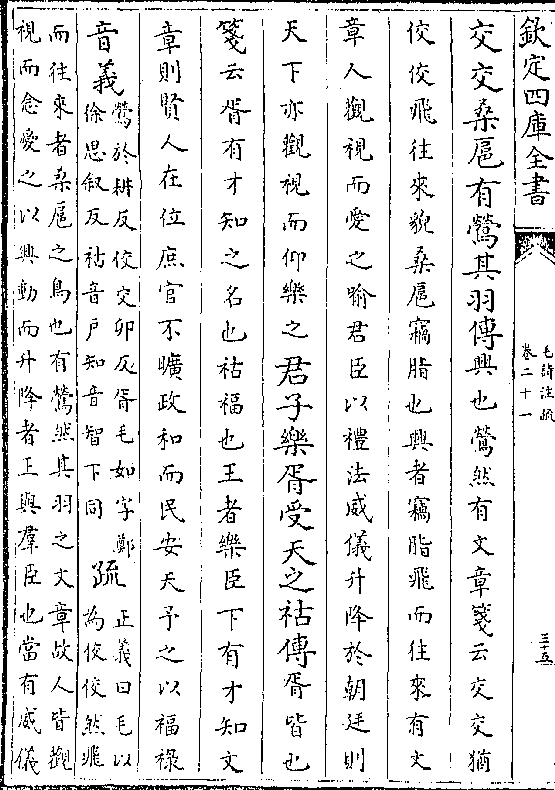 欽定四庫全書
毛詩注疏
卷二十一
三十五
交交桑扈有鶯其羽傳興也鶯然有文章箋云交交猶
佼佼飛往來貌桑扈竊脂也興者竊脂飛而往來有文
章人觀視而愛之喻君臣以禮法威儀升降於朝廷則
天下亦觀視而仰樂之君子樂胥受天之祜傳胥皆也
箋云胥有才知之名也祜福也王者樂臣下有才知文
章則賢人在位庶官不曠政和而民安天予之以福祿
音義鶯於耕反佼交卯反胥毛如字鄭
徐思叙反祜音戶知音智下同
疏正義曰毛以
為佼佼然飛
而往來者桑扈之鳥也有鶯然其羽之文章故人皆觀
視而念愛之以興動而升降者王與羣臣也當有威儀